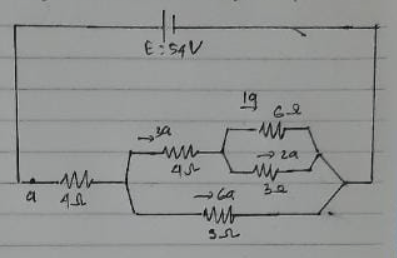 E: 54V
1a
6Ω
→3a
4Ω
→2a
3Ω
a
4Ω
→6a
3Ω